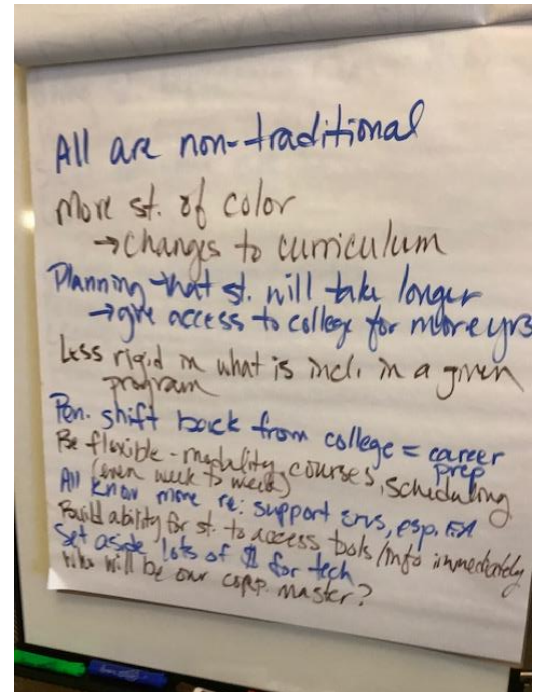 All are non-traditional
More st. of color
→ changes to curriculum
Planning that st. will take longer
→ give access to college for more yrs
Less rigid in what is incl. in a given
program
Pen. shift back from college = career
prep
Be flexible - modality, courses, scheduling
(even week to week)
All know more re: support srvs, esp. FA
Build ability for st. to access tools/info immediately
Set aside lots of $ for tech
Who will be our corp. master?